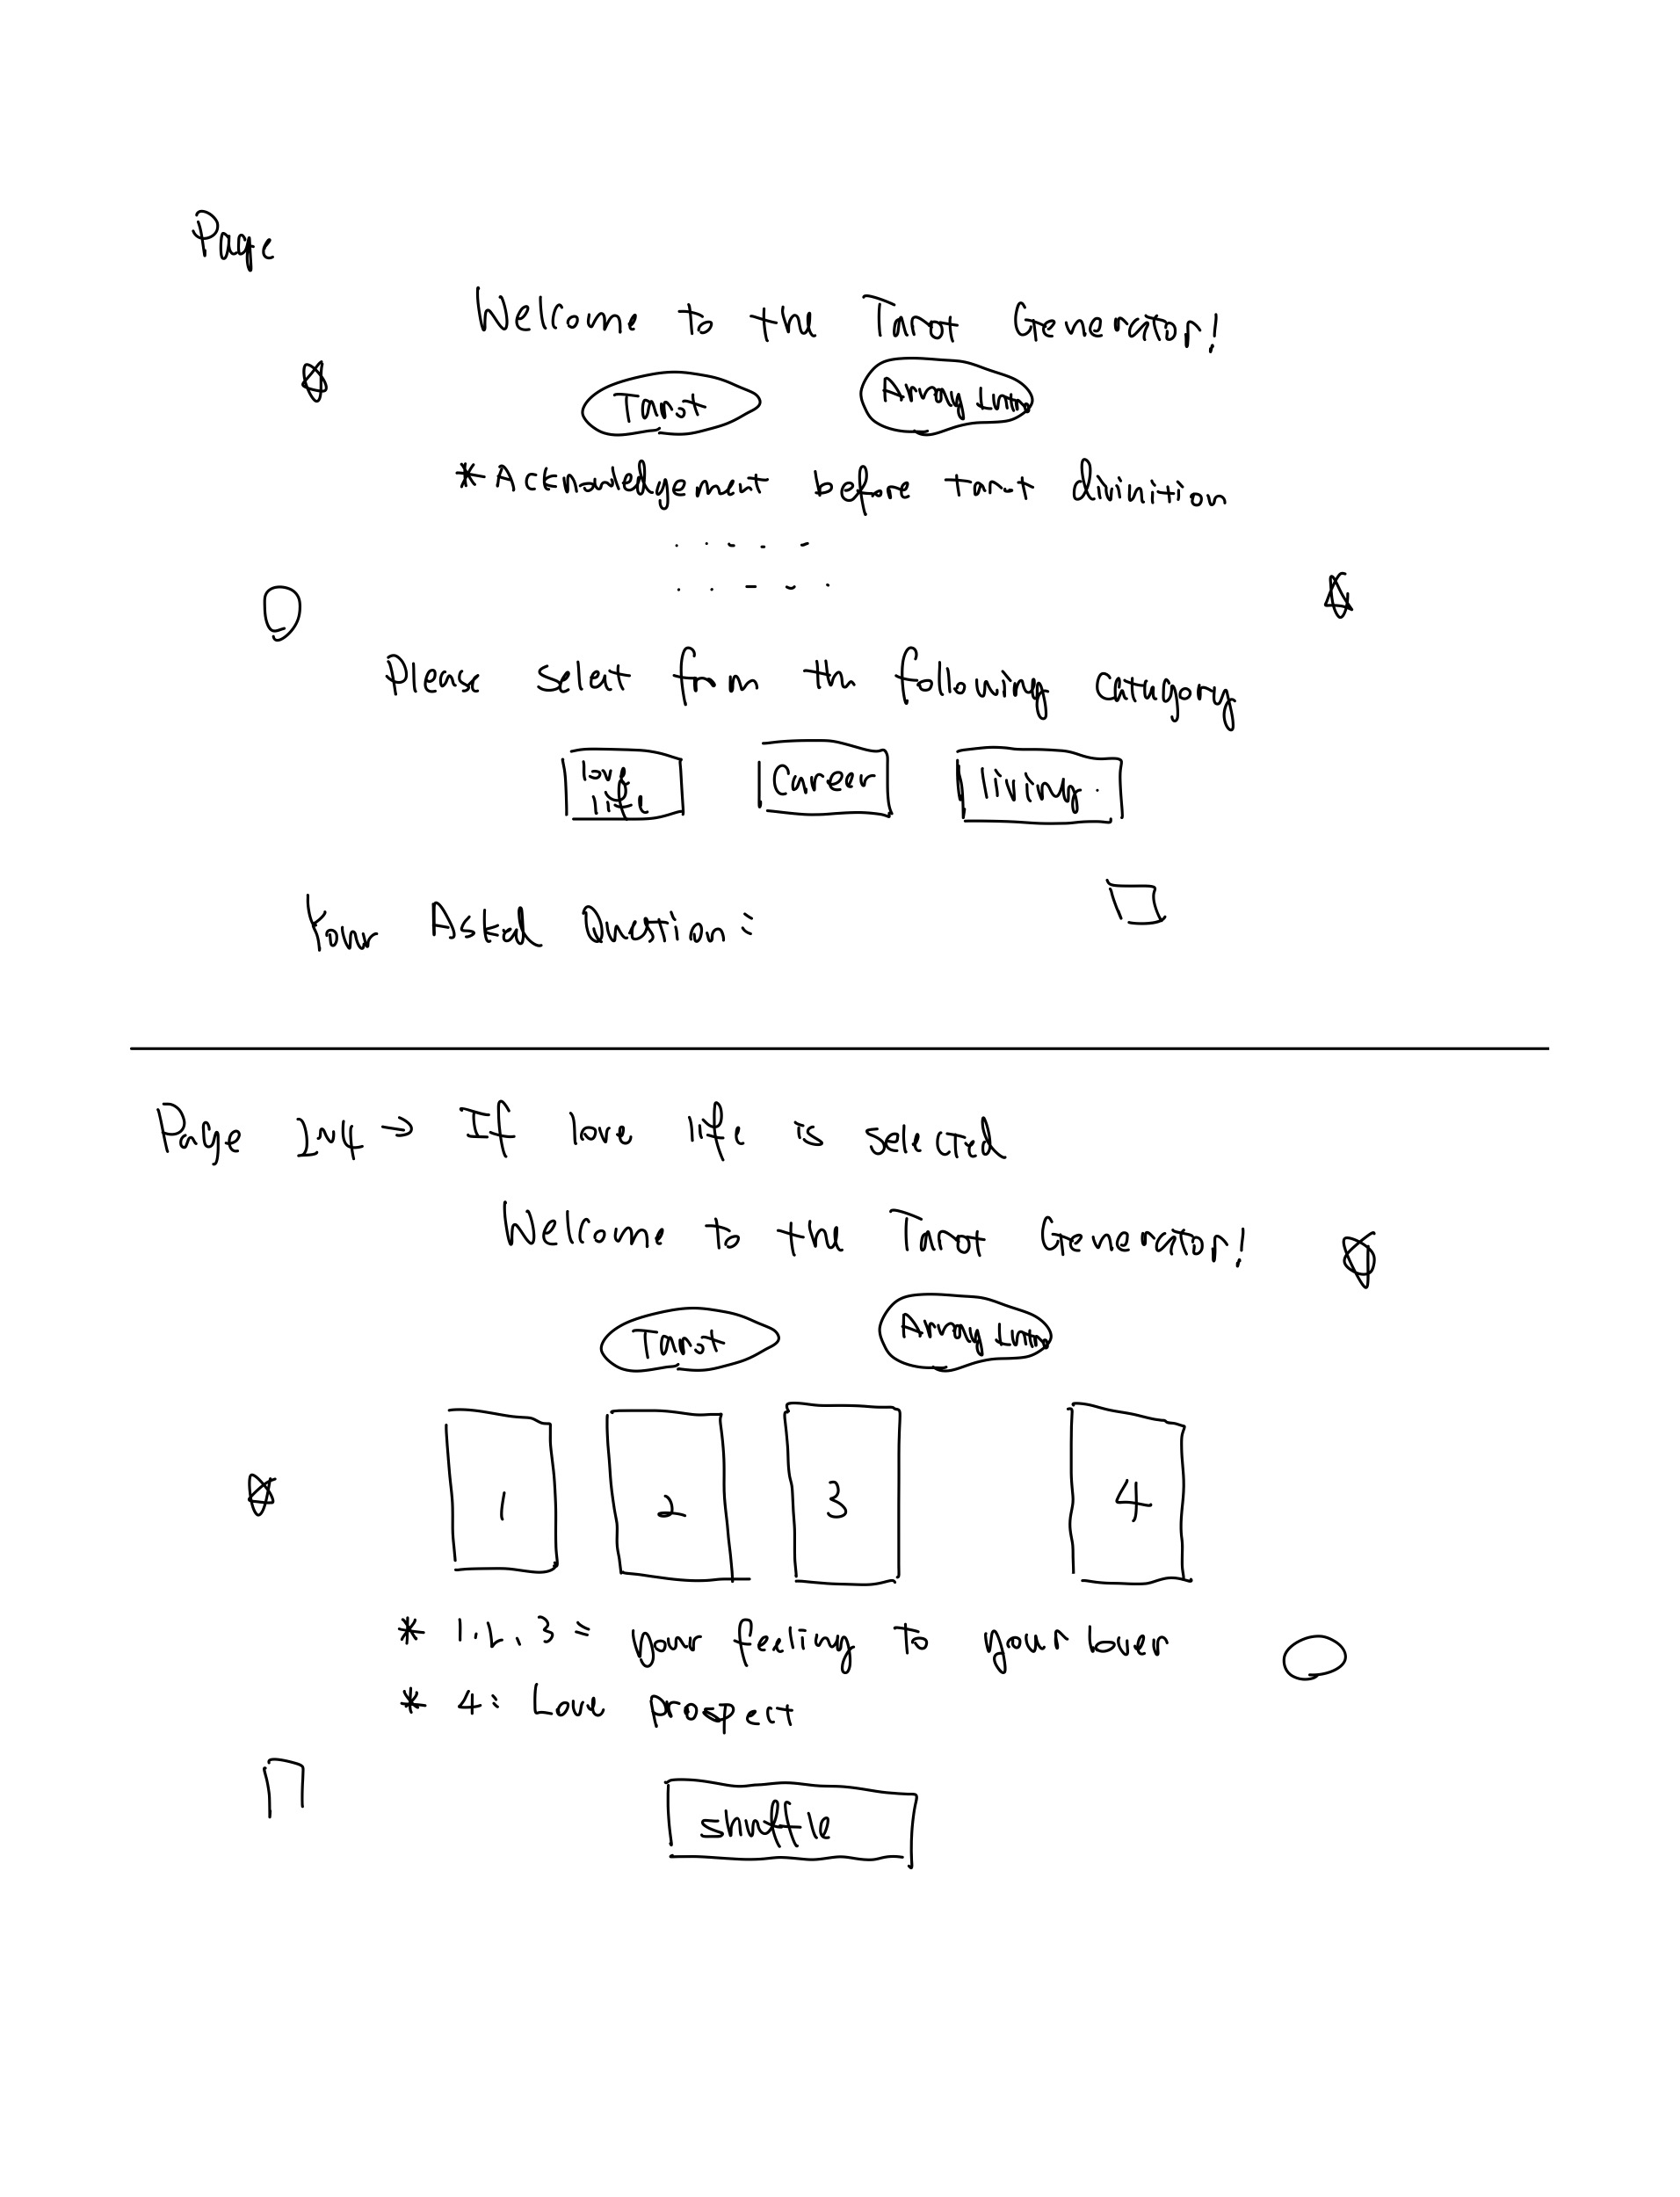 Page
Welcome to the Tarot Generator!
Tarot
Array Intro
*Acknowledgement before tarot divinition
Please select from the following category
love
life
Career
living
Your Asked Question:
Page Int → If love life is selected
Welcome to the Tarot Generator!
Tarot
Array Intro
1
2
3
4
* 1, 2, 3: your feeling to your lover
* 4: Love prospect
shuffle